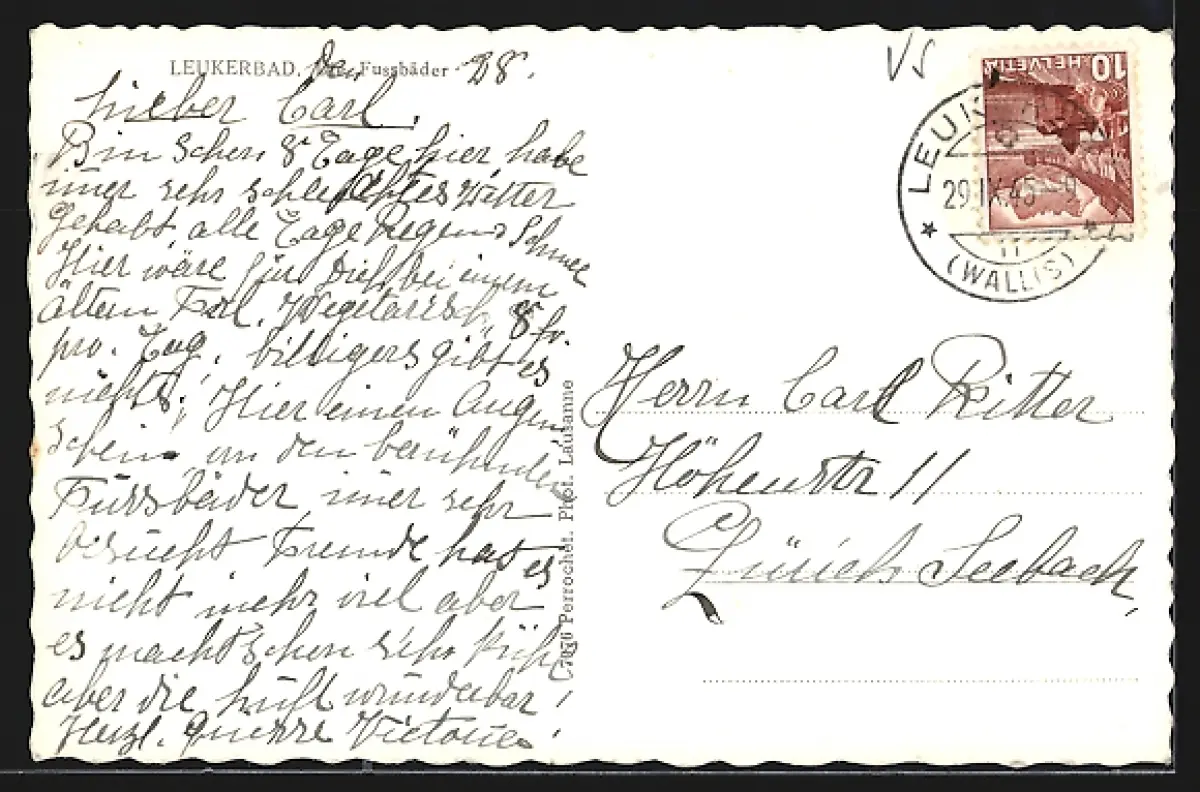 LEUKERBAD. Fussbäder
Den 28.
VS
10 HELVETIA
LEUK
29.IX.45-9
(WALLIS)
Lieber Carl,
Bin schon 8 Tage hier, habe
imer sehr schlechtes Wetter
gehabt, alle Tage Regen Schnee
Hier wäre für Dich bei einem
ältern Frl. Vegetarisch 8 fr.
pro. Tag. billigers gibt es
nichts! Hier einen Augen
schein an den berühmden
Fussbäder imer sehr
besucht Fremde hat es
nicht mehr viel aber
es macht schon sehr kühl
aber die Luft wunderbar!
Herzl. Grüsse Victorine.
7076 Perrochet. Phot. Lausanne
Herrn Carl Ritter
Höhenstr 11
Zürich Seebach,